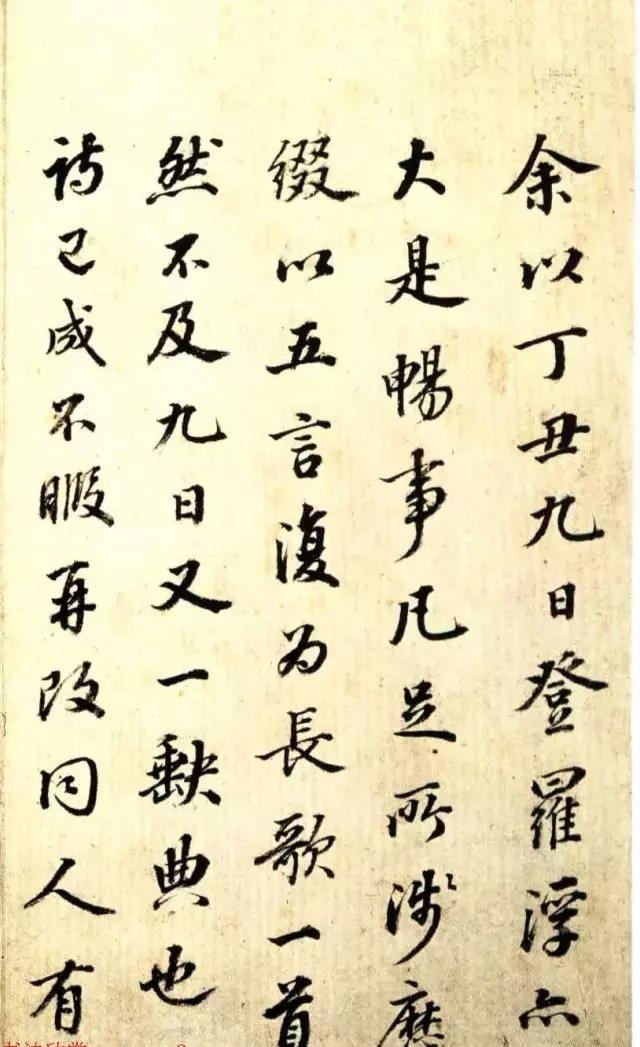 余以丁丑九日登羅浮亦
大是暢事凡足所涉歷
綴以五言復為長歌一首
然不及九日又一缺典也
詩已成不暇再改同人有
书法欣赏